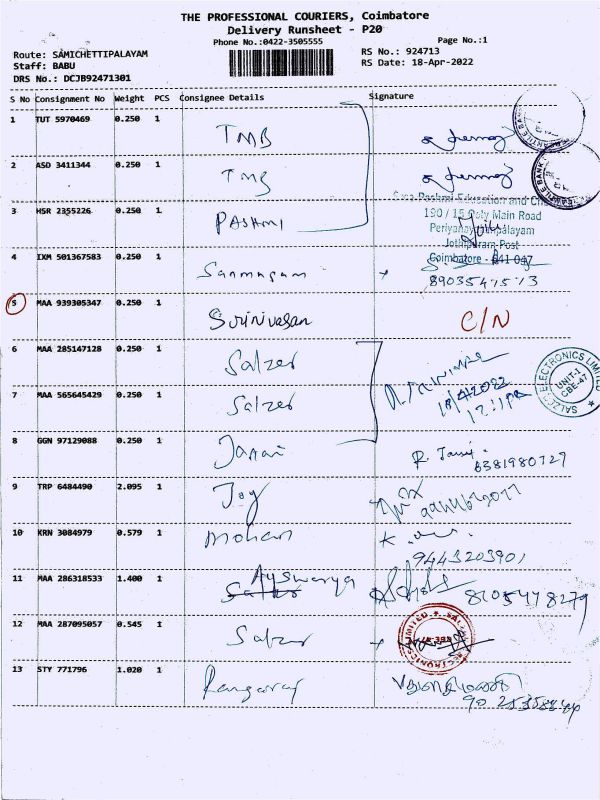 THE PROFESSIONAL COURIERS, Coimbatore
Delivery Runsheet - P20
Phone No.:0422-3505555
Page No.:1
Route: SAMICHETTIPALAYAM
Staff: BABU
DRS No.: DCJB92471301
RS No.: 924713
RS Date: 18-Apr-2022
S No Consignment No Weight PCS Consignee Details Signature
1 TUT 5970469 0.250 1 TMB
2 ASD 3411344 0.250 1 TMB
3 HSR 2355226 0.250 1 PASHMI
Education and
190 / 15 Poly Main Road
Jothipuram Post
Coimbatore - 641 047
4 IXM 501367583 0.250 1 Sanmugam
5 MAA 939305347 0.250 1 Srinivasan C/N
6 MAA 285147128 0.250 1 Salzer
7 MAA 565645429 0.250 1 Salzer
18/4/2022
SALZER ELECTRONICS LIMITED
UNIT-1
CBE-47
8 GGN 97129088 0.250 1 Janani
6381980729
9 TRP 6484490 2.095 1 Joy
10 KRN 3084979 0.579 1 Mohan
9443203901
11 MAA 286318533 1.400 1 Ayswarya
12 MAA 287095057 0.545 1 Salzer
13 STY 771796 1.020 1 Rangaraj